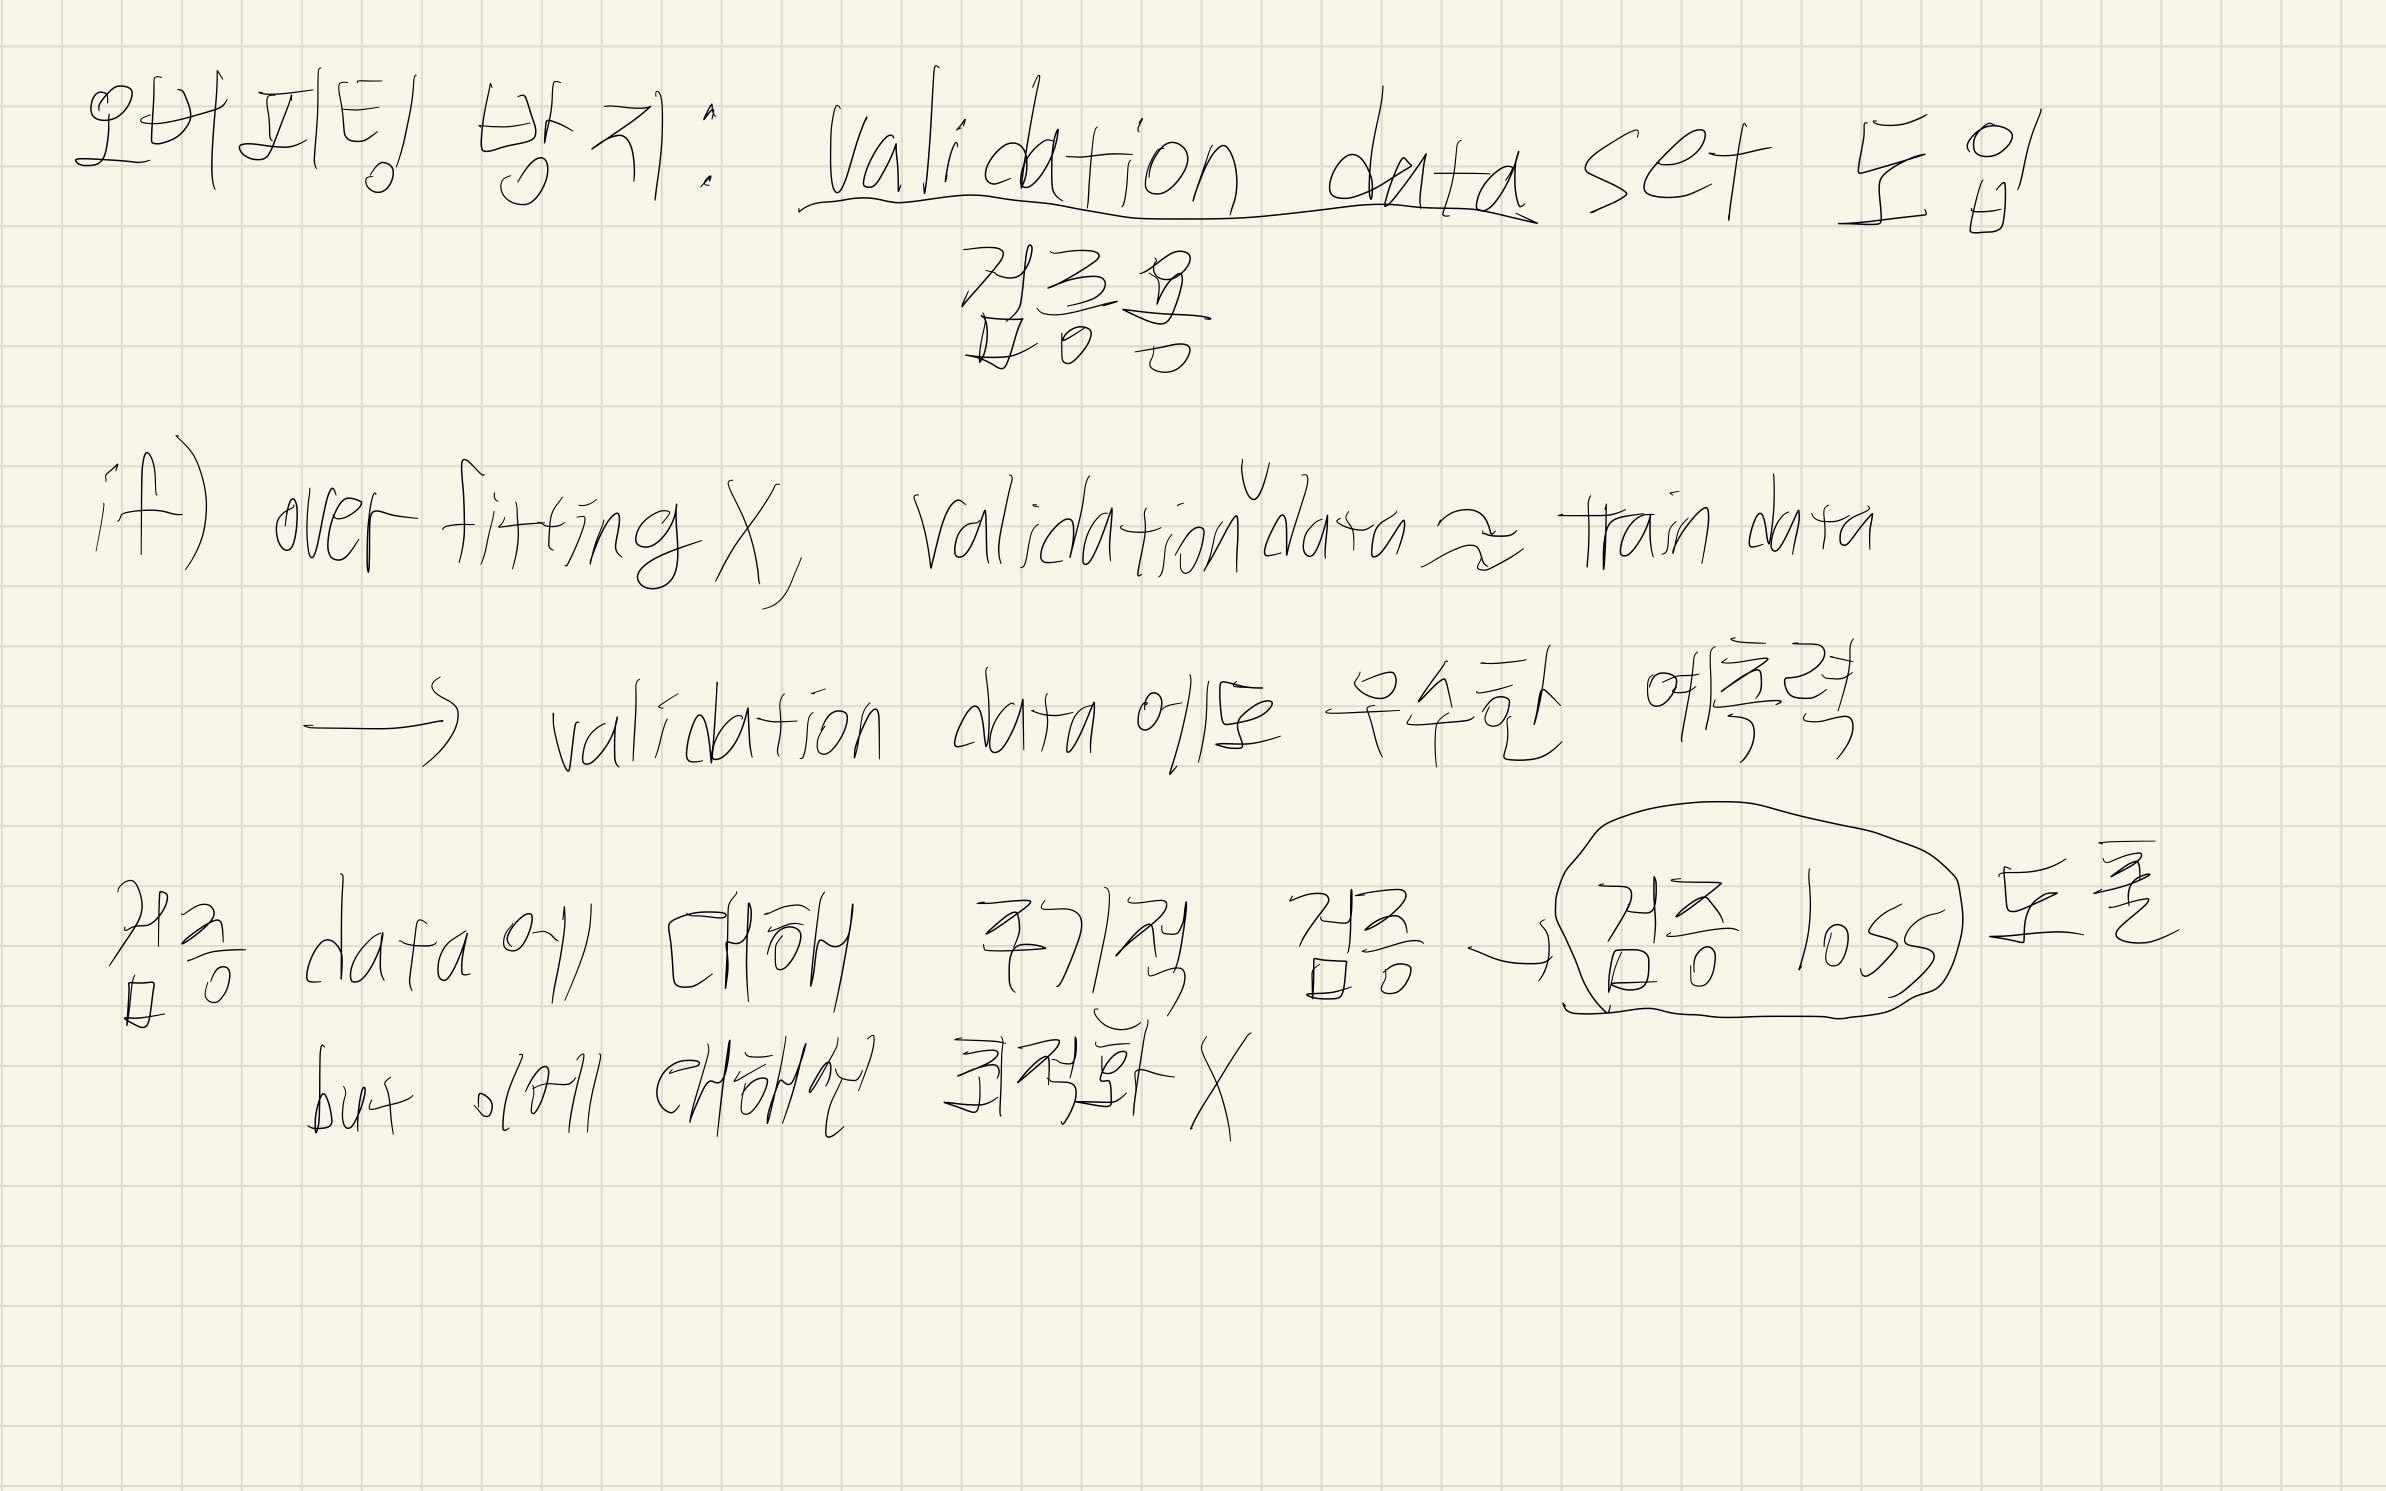 오버피팅 방지: validation data set 도입
검증용
if) overfitting X, validation data ≈ train data
→ validation data에도 우수한 예측력
검증 data에 대해 주기적 검증 → 검증 loss 도출
but 이에 대해선 최적화 X